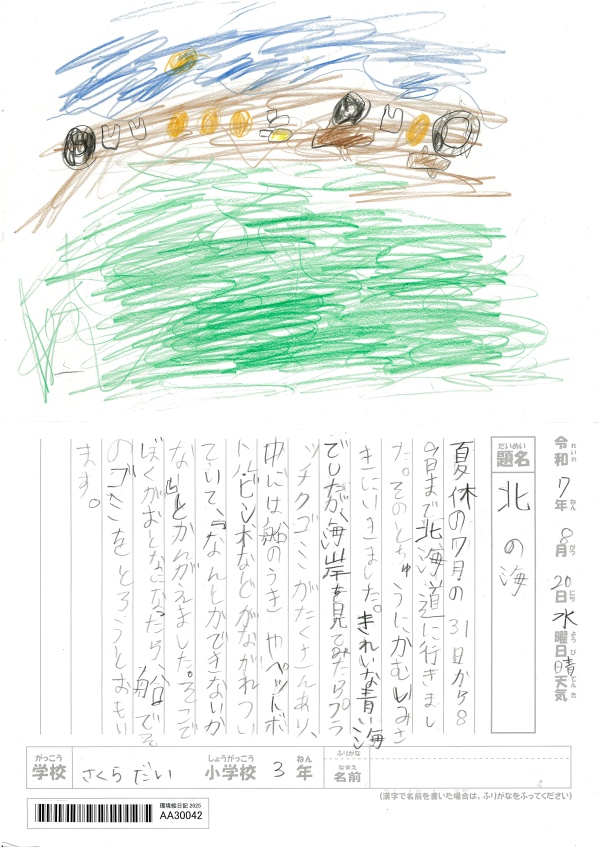 令和7年8月20日水曜日晴天気
れいわ ねん がつ にち ようび てんき
だいめい
題名 北の海
夏休の7月の31日から8
月までに北海道に行きまし
た。そのとちゅうにかむいみさ
きにいきました。きれいな青い海
でしたが、海岸を見てみたら。プラ
ッチクゴミがたくさんあり、
中には船のうきやペットボ
トル、ビン、木などがながれつい
ていて、「なんとかできないか
な」とかんがえました。そこで
ぼくがおとなになったら、船でそ
のゴミをとろうとおもい
ます。
がっこう
学校 さくらだい
しょうがっこう
小学校 3
ねん
年
ふりがな
なまえ
名前
(漢字で名前を書いた場合は、ふりがなをふってください)
環境絵日記 2025
AA30042